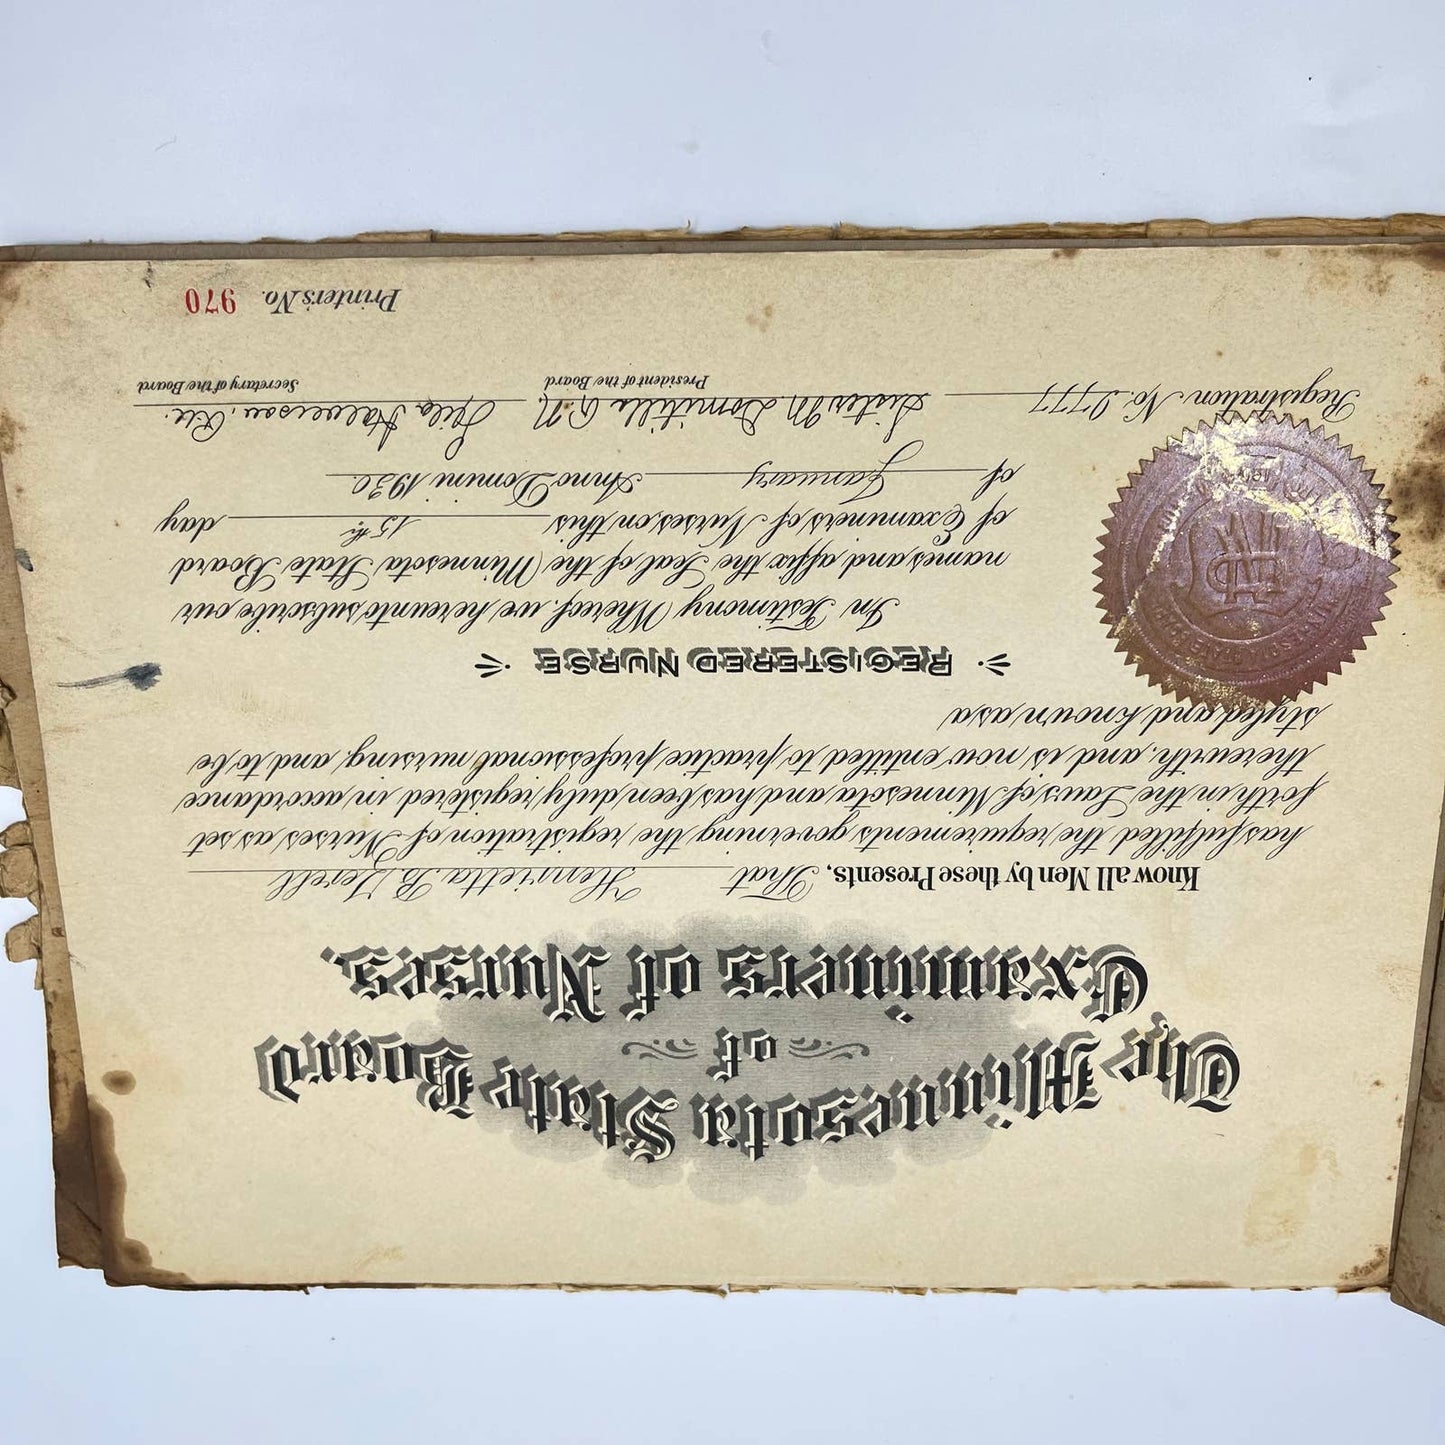 The Minnesota State Board
of
Examiners of Nurses.
Know all Men by these Presents, That Henrietta B.
has fulfilled the requirements governing the registration of Nurses as set
forth in the Laws of Minnesota and has been duly registered in accordance
therewith, and is now entitled to practice professional nursing, and to be
styled and known as a
REGISTERED NURSE
In Testimony Whereof, we hereunto subscribe our
names and affix the Seal of the Minnesota State Board
of Examiners of Nurses, on this 15th day
of January Anno Domini 1930
Registration No. 9777 Sister M Domitilla R.N. Leila Halverson, R.N.
President of the Board Secretary of the Board
Printer's No. 970